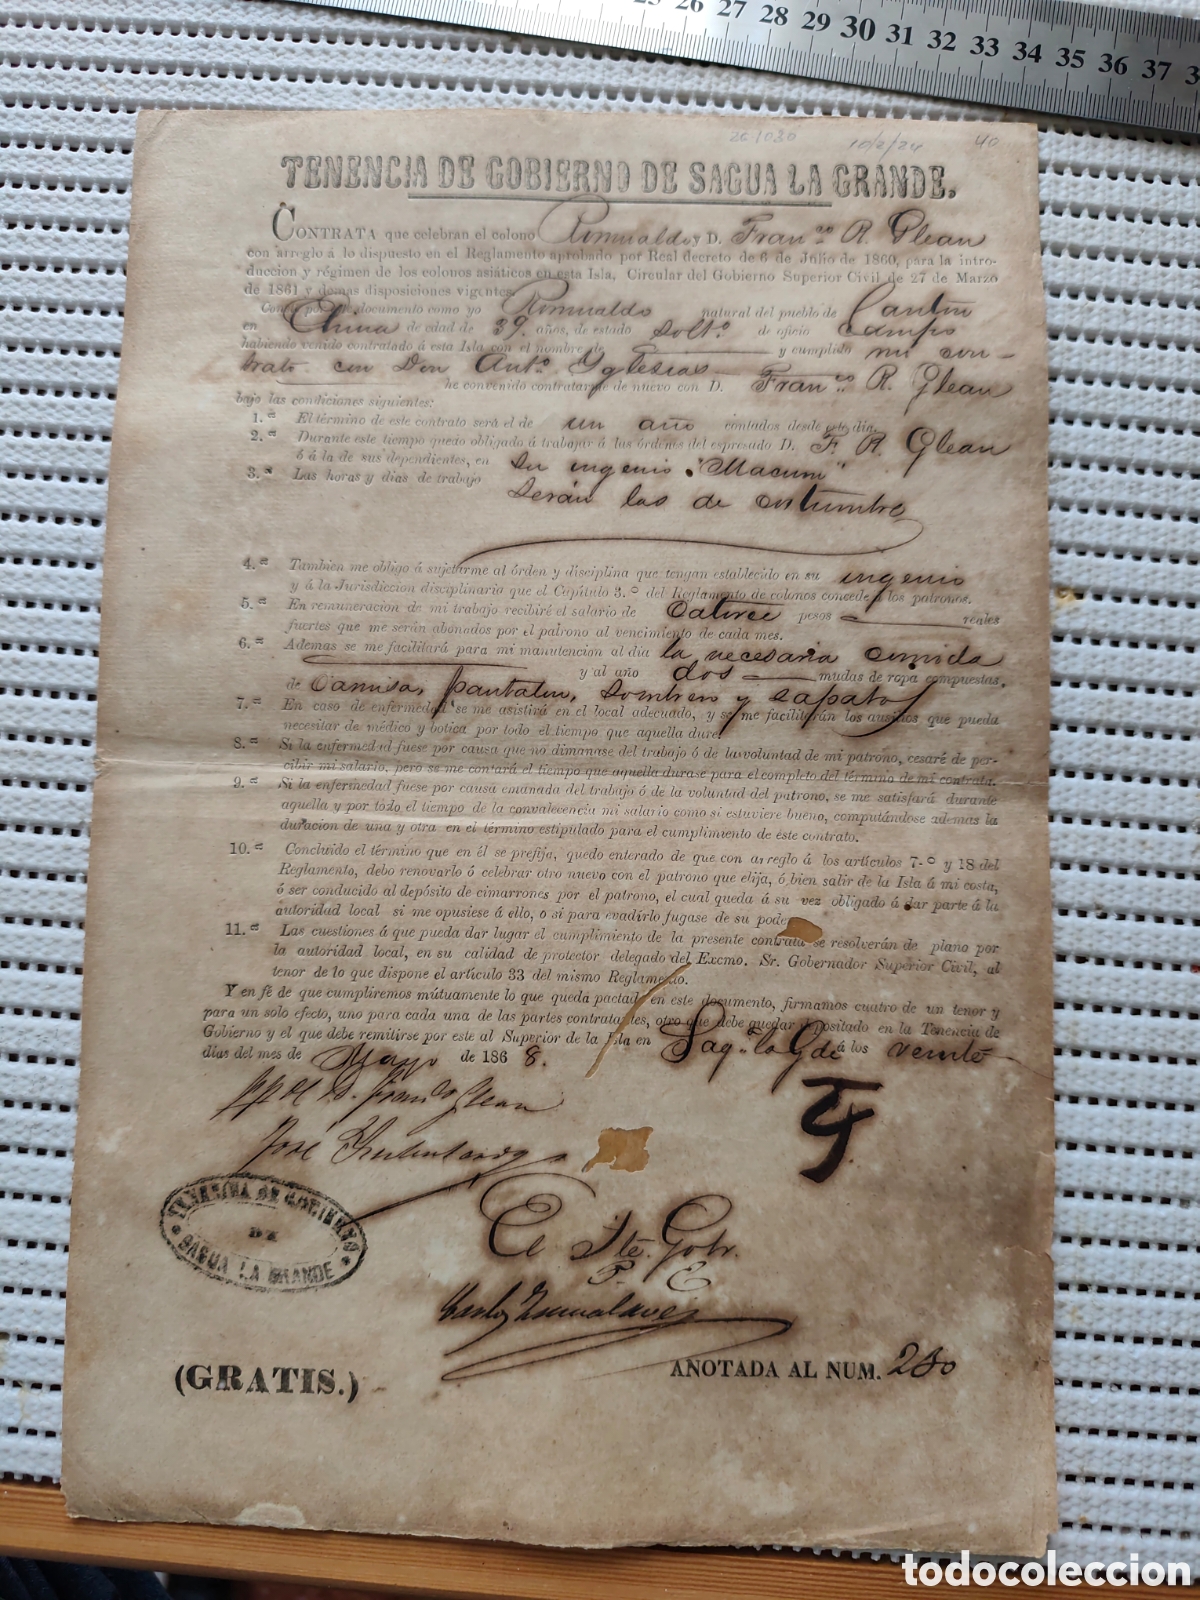 25 26 27 28 29 30 31 32 33 34 35 36 37 3
10/2/24 40
TENENCIA DE GOBIERNO DE SAGUA LA GRANDE.
CONTRATA que celebran el colono Romualdo y D. Fran.co R. Glean
con arreglo á lo dispuesto en el Reglamento aprobado por Real decreto de 6 de Julio de 1860, para la intro-
duccion y régimen de los colonos asiáticos en esta Isla, Circular del Gobierno Superior Civil de 27 de Marzo
de 1861 y demas disposiciones vigentes.
Consta por este documento como yo Romualdo natural del pueblo de Canton
en China de edad de 39 años, de estado solt.o de oficio campo
habiendo venido contratado á esta Isla con el nombre de y cumplido mi con-
trato con Don Ant.o Yglesias
he convenido contratarme de nuevo con D. Fran.co R. Glean
bajo las condiciones siguientes:
1.a El término de este contrato será el de un año contados desde este dia.
2.a Durante este tiempo quedo obligado á trabajar á las órdenes del espresado D. F. R. Glean
ó á la de sus dependientes, en su ingenio "Macuni"
3.a Las horas y dias de trabajo serán las de costumbre
4.a Tambien me obligo á sujetarme al órden y disciplina que tengan establecido en su ingenio
y á la Jurisdiccion disciplinaria que el Capítulo 3.o del Reglamento de colonos concede á los patronos.
5.a En remuneracion de mi trabajo recibiré el salario de Catorce pesos reales
fuertes que me serán abonados por el patrono al vencimiento de cada mes.
6.a Ademas se me facilitará para mi manutencion al dia la necesaria comida
y al año dos mudas de ropa compuestas,
de Camisa, pantalon, sombrero y zapatos
7.a En caso de enfermedad se me asistirá en el local adecuado, y se me facilitarán los ausilios que pueda
necesitar de médico y botica por todo el tiempo que aquella dure.
8.a Si la enfermedad fuese por causa que no dimanase del trabajo ó de la voluntad de mi patrono, cesaré de per-
cibir mi salario, pero se me contará el tiempo que aquella durase para el completo del término de mi contrata.
9.a Si la enfermedad fuese por causa emanada del trabajo ó de la voluntad del patrono, se me satisfará durante
aquella y por todo el tiempo de la convalecencia mi salario como si estuviere bueno, computándose ademas la
duracion de una y otra en el término estipulado para el cumplimiento de este contrato.
10.a Concluido el término que en él se prefija, quedo enterado de que con arreglo á los artículos 7.o y 18 del
Reglamento, debo renovarlo ó celebrar otro nuevo con el patrono que elija, ó bien salir de la Isla á mi costa,
ó ser conducido al depósito de cimarrones por el patrono, el cual queda á su vez obligado á dar parte á la
autoridad local si me opusiese á ello, ó si para evadirlo fugase de su pode
11.a Las cuestiones á que pueda dar lugar el cumplimiento de la presente contrata se resolverán de plano por
la autoridad local, en su calidad de protector delegado del Excmo. Sr. Gobernador Superior Civil, al
tenor de lo que dispone el artículo 33 del mismo Reglamento.
Y en fé de que cumpliremos mútuamente lo que queda pactado en este documento, firmamos cuatro de un tenor y
para un solo efecto, uno para cada una de las partes contratantes, otro que debe quedar depositado en la Tenencia de
Gobierno y el que debe remitirse por este al Superior de la Isla en Sag.a la G.de á los veinte
días del mes de Mayo de 1868.
D. Fran.co Glean
José
TENENCIA DE GOBIERNO
DE
SAGUA LA GRANDE
El Tte. Gobr.
P. E
Carlos
(GRATIS.)
ANOTADA AL NUM. 230
todocoleccion